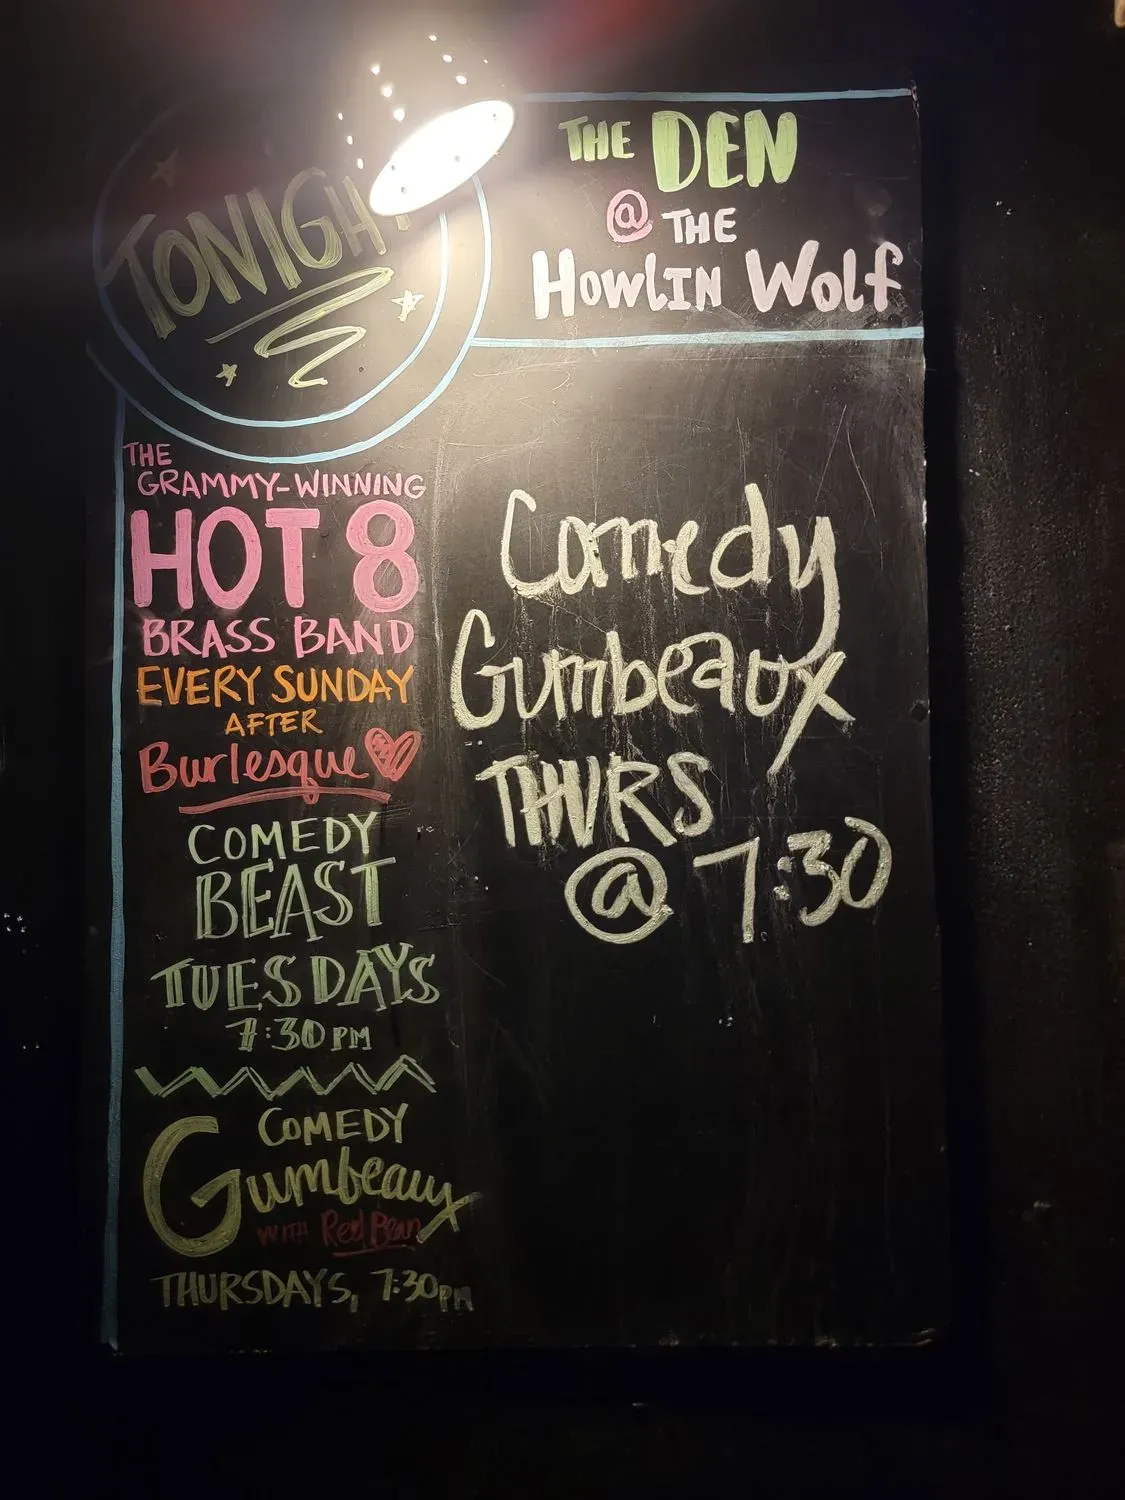 TONIGHT
THE DEN
@ THE
HOWLIN WOLF
THE
GRAMMY-WINNING
HOT 8
BRASS BAND
EVERY SUNDAY
AFTER
Burlesque
COMEDY
BEAST
TUESDAYS
7:30PM
COMEDY
Gumbeaux
WITH Red Bean
THURSDAYS, 7:30PM
Comedy
Gumbeaux
THURS
@ 7:30